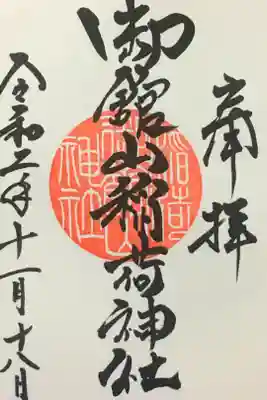 奉拝
御舘山稲荷神社
令和二年十一月十八日